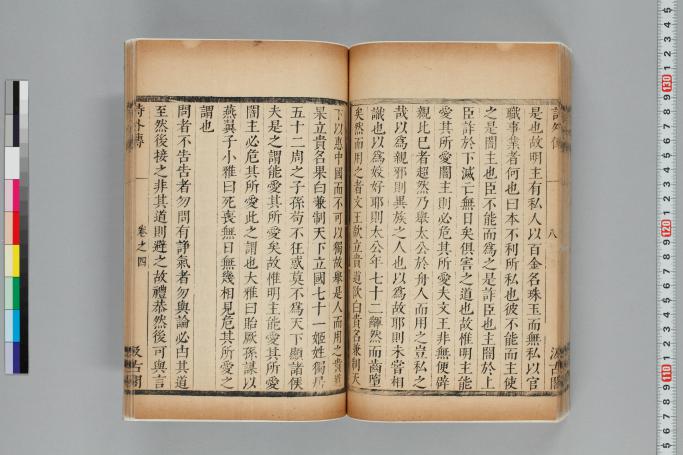 詩外傳 八 汲古閣
是也故明主有私人以百金名珠玉而無私以官
職事業者何也曰本不利所私也彼不能而主使
之是闇主也臣不能而爲之是詐臣也主闇於上
臣詐於下滅亡無日矣俱害之道也故惟明主能
愛其所愛闇主則必危其所愛夫文王非無便辟
親比己者超然乃舉太公於舟人而用之豈私之
哉以爲親邪則異族之人也以爲故耶則未嘗相
識也以爲姣好耶則太公年七十二齳然而齒墮
矣然而用之者文王欲立貴道欲白貴名兼制天
下以惠中國而不可以獨故舉是人而用之貴道
果立貴名果白兼制天下立國七十一姬姓獨居
五十二周之子孫苟不狂惑莫不爲天下顯諸侯
夫是之謂能愛其所愛矣故惟明主能愛其所愛
闇主必危其所愛此之謂也大雅曰貽厥孫謀以
燕翼子小雅曰死喪無日無幾相見危其所愛之
謂也
問者不告告者勿問有諍氣者勿與論必由其道
至然後接之非其道則避之故禮恭然後可與言
詩外傳 卷之四 汲古閣